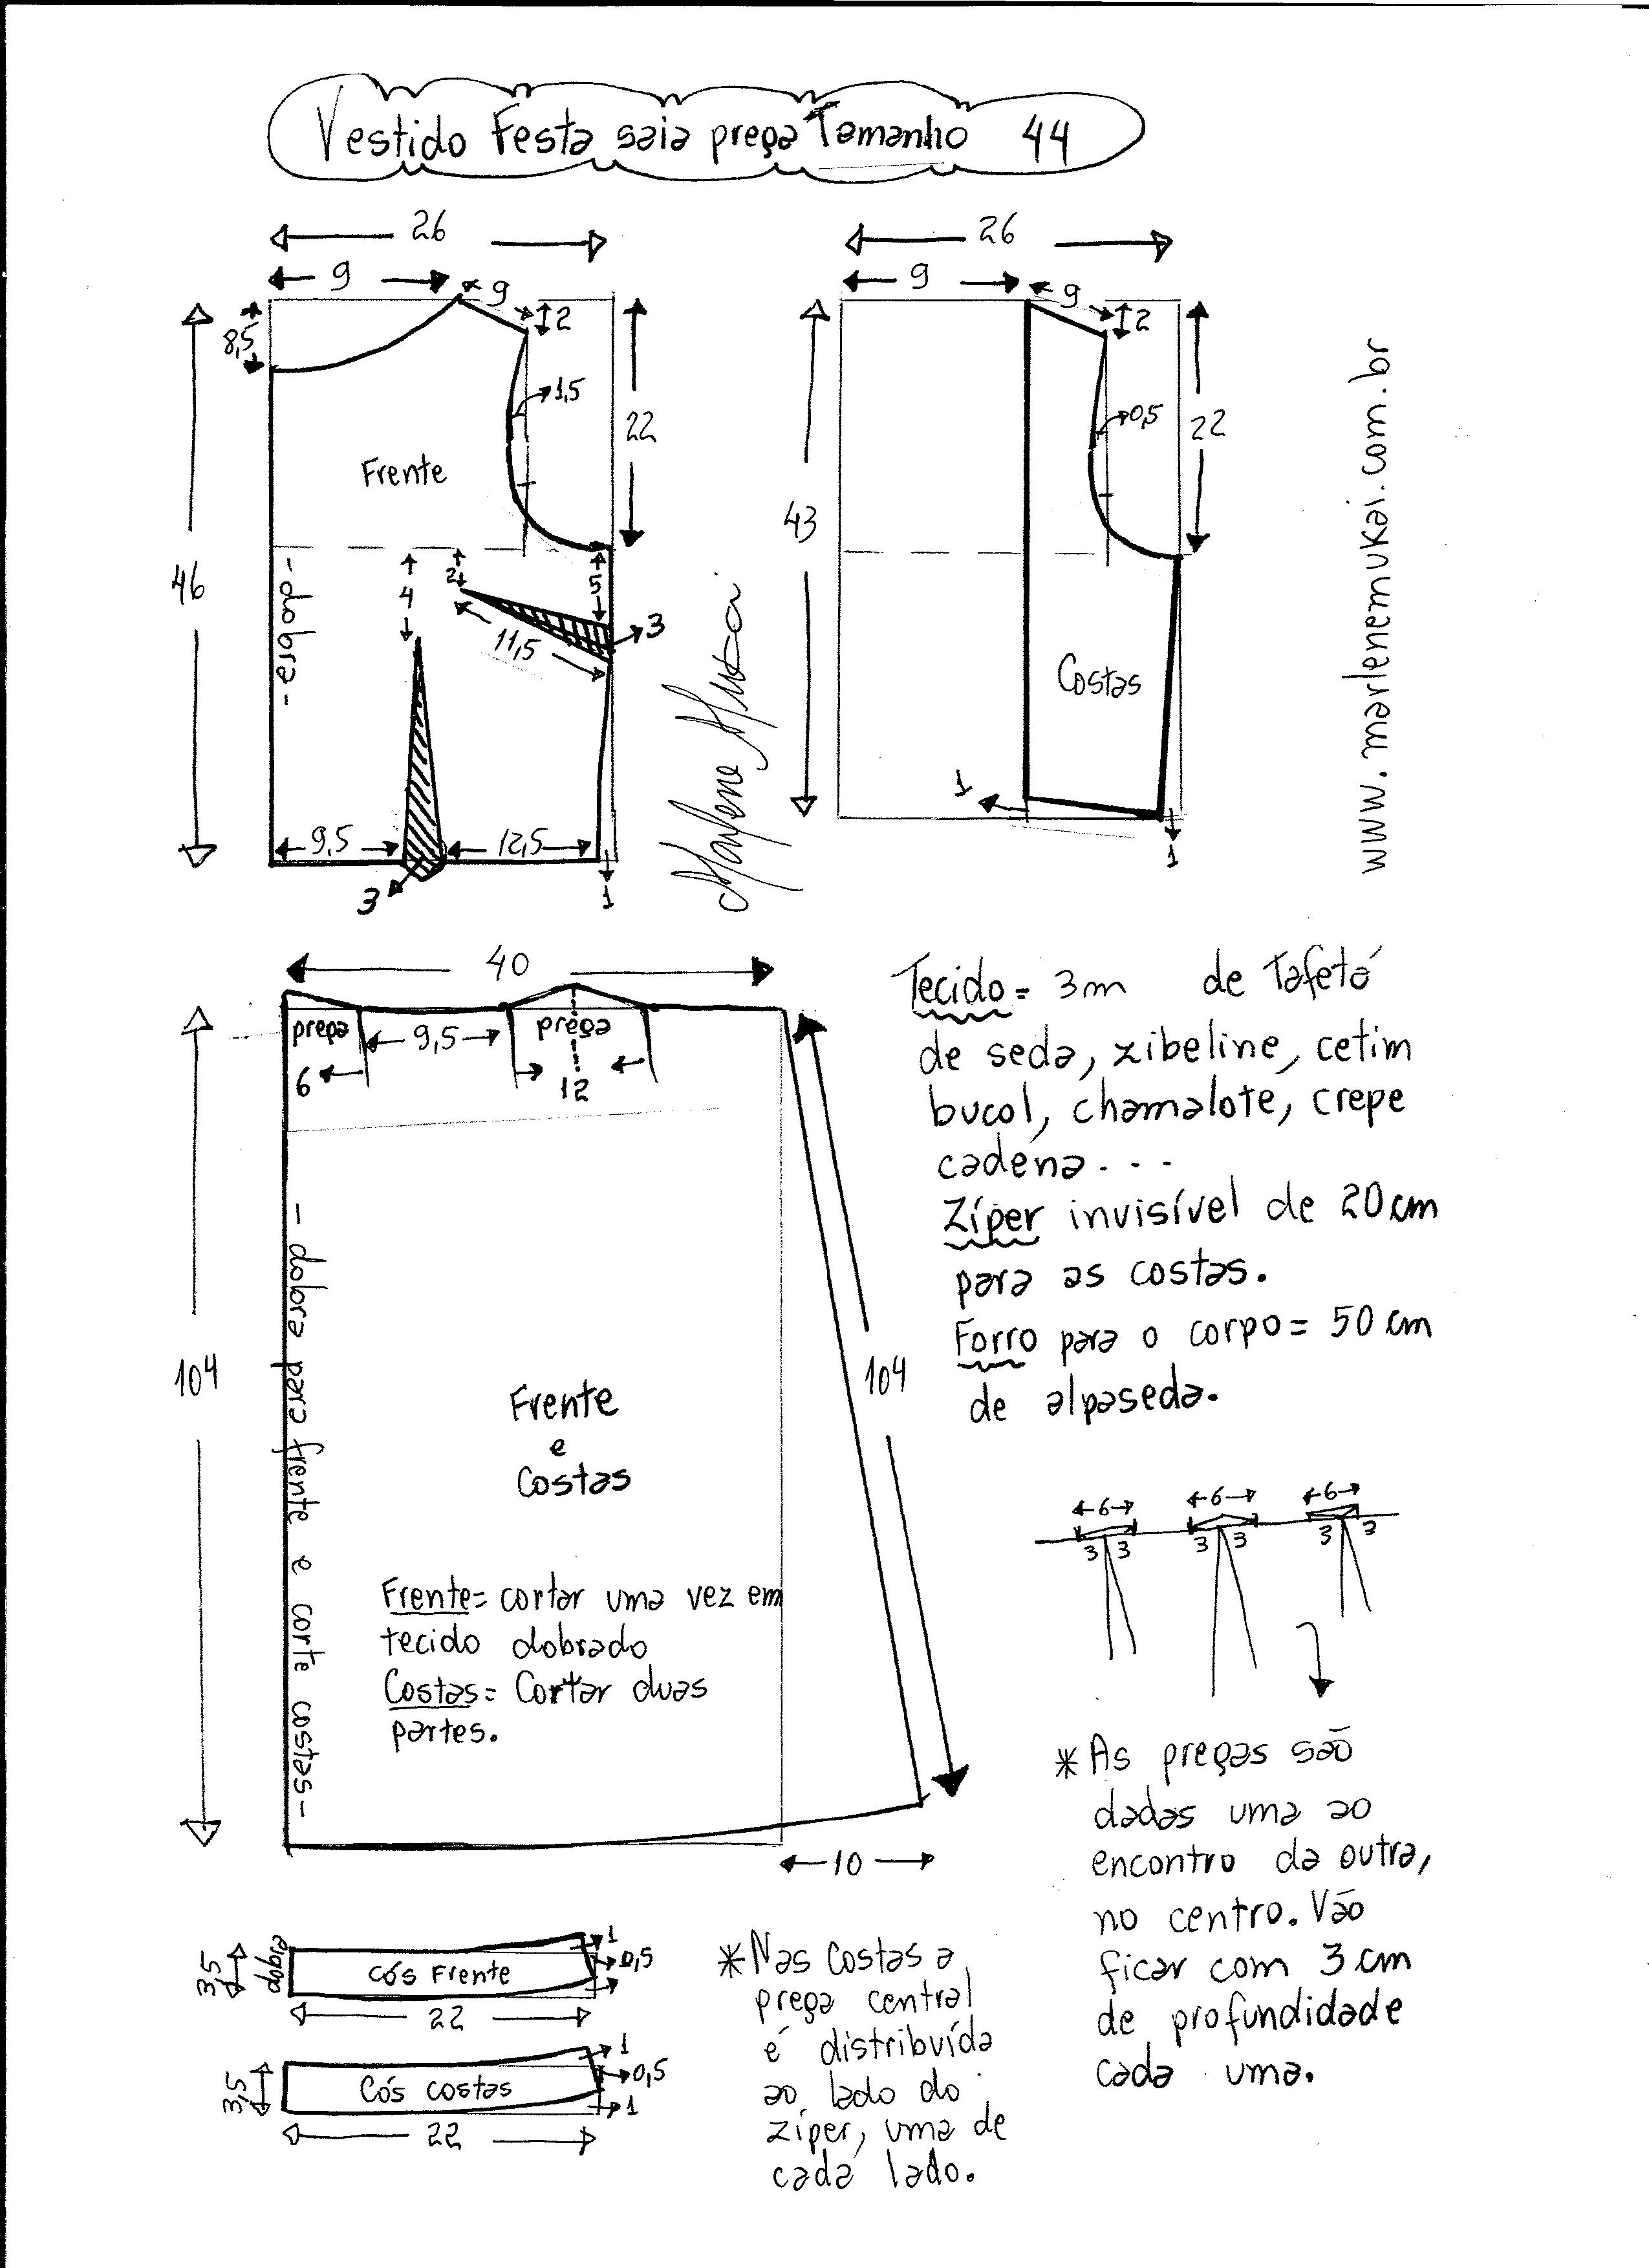 Vestido Festa saia prega Tamanho 44
26
9
9
2
8,5
1,5
22
Frente
46
- dobra -
4
2
5
3
11,5
9,5
12,5
3
1
26
9
9
2
0,5
22
43
Costas
1
1
Marlene Mukai
www.marlenemukai.com.br
40
prega
9,5
prega
6
12
104
104
- dobra para frente e corte costas -
Frente
e
Costas
Frente= cortar uma vez em
tecido dobrado
Costas= Cortar duas
partes.
10
Tecido= 3m de Tafetá
de seda, zibeline, cetim
bucol, chamalote, crepe
cadena...
Zíper invisível de 20cm
para as costas.
Forro para o corpo= 50 cm
de alpaseda.
6
6
6
3 3
3 3
3 3
*As pregas são
dadas uma ao
encontro da outra,
no centro. Vão
ficar com 3 cm
de profundidade
cada uma.
3,5
dobra
Cós Frente
1
0,5
22
3,5
Cós costas
1
0,5
1
22
*Nas Costas a
prega central
é distribuída
ao lado do
zíper, uma de
cada lado.